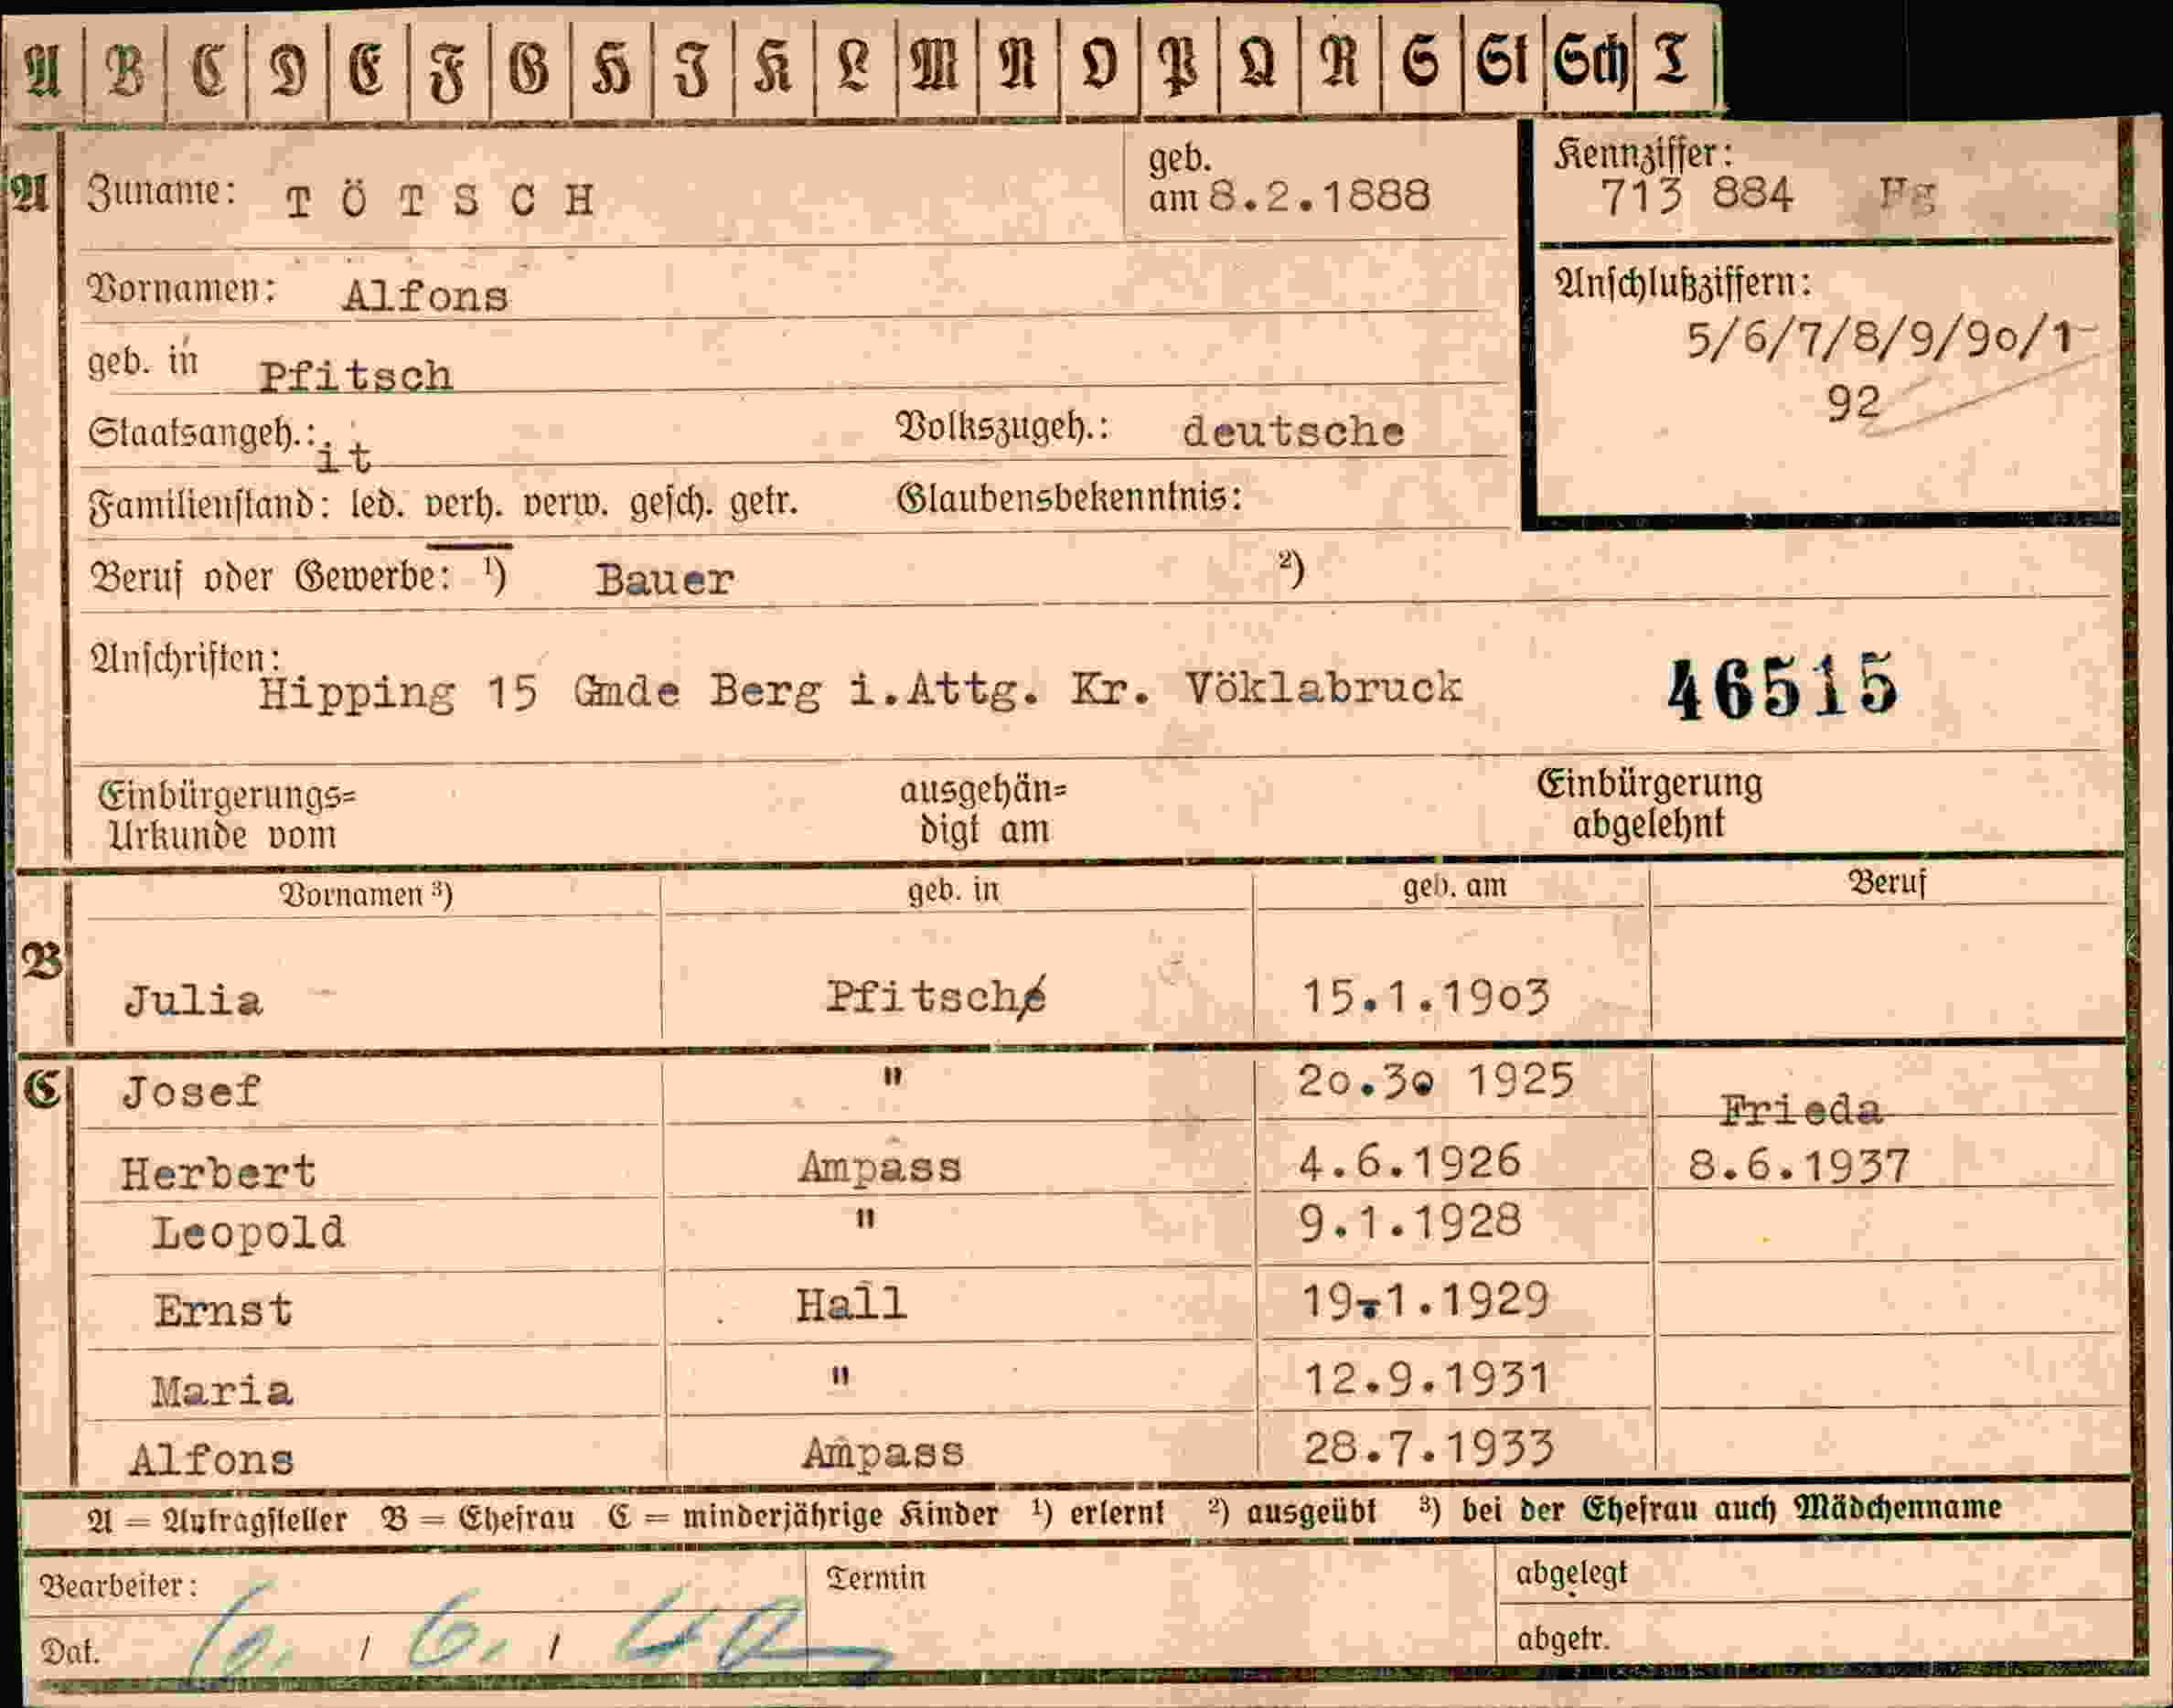 A B C D E F G H I K L M N O P Q R S St Sch T
A Zuname: TÖTSCH geb. am 8.2.1888
Kennziffer: 713 884 Hg
Vornamen: Alfons
Anschlußziffern:
5/6/7/8/9/90/1
92
geb. in Pfitsch
Staatsangeh.: it Volkszugeh.: deutsche
Familienstand: led. verh. verw. gesch. getr. Glaubensbekenntnis:
Beruf oder Gewerbe: ¹) Bauer ²)
Anschriften: Hipping 15 Gmde Berg i.Attg. Kr. Vöklabruck 46515
Einbürgerungs= ausgehän= Einbürgerung
Urkunde vom digt am abgelehnt
Vornamen ³) geb. in geb. am Beruf
B
Julia Pfitsch 15.1.1903
C Josef " 20.30 1925
Frieda
Herbert Ampass 4.6.1926 8.6.1937
Leopold " 9.1.1928
Ernst Hall 19.1.1929
Maria " 12.9.1931
Alfons Ampass 28.7.1933
A = Antragsteller B = Ehefrau C = minderjährige Kinder ¹) erlernt ²) ausgeübt ³) bei der Ehefrau auch Mädchenname
Bearbeiter: Termin abgelegt
Dat. / 6. / 40 abgetr.